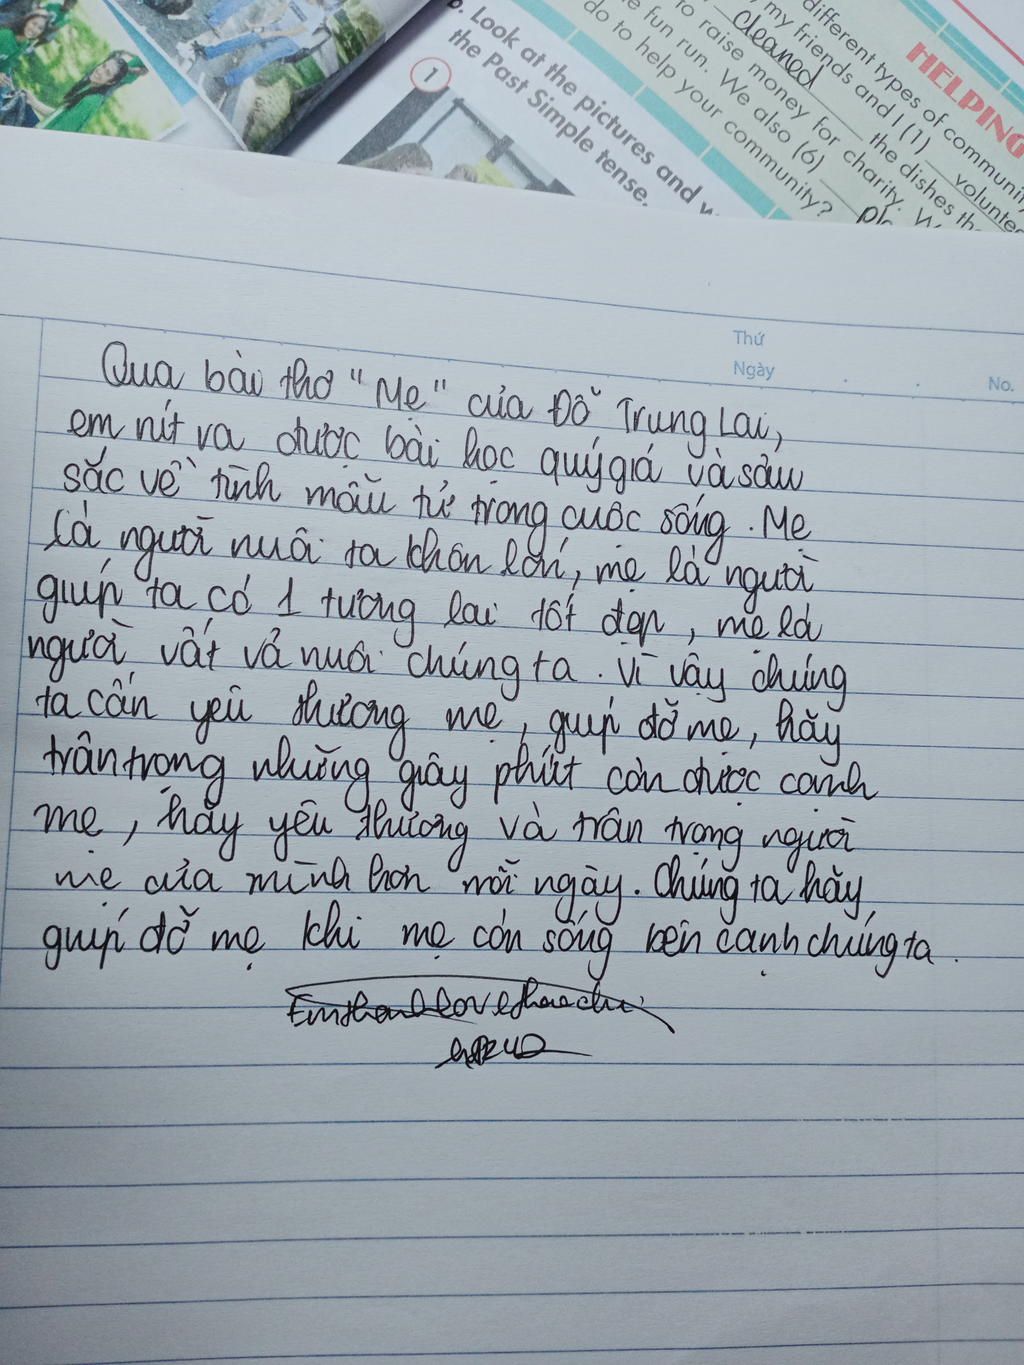 b. Look at the pictures and w
the Past Simple tense.
1
HELPING
different types of community
my friends and I (1) ___ volunteer
cleaned ___ the dishes th
to raise money for charity. W
e fun run. We also (6) ___ pla
do to help your community?
Thứ
Ngày . .
No.
Qua bài thơ "Mẹ" của Đỗ Trung Lai,
em rút ra được bài học quý giá và sâu
sắc về tình mẫu tử trong cuộc sống. Mẹ
là người nuôi ta khôn lớn, mẹ là người
giúp ta có 1 tương lai tốt đẹp, mẹ là
người vất vả nuôi chúng ta. Vì vậy chúng
ta cần yêu thương mẹ, giúp đỡ mẹ, hãy
trân trọng những giây phút còn được cạnh
mẹ, hãy yêu thương và trân trọng người
mẹ của mình hơn mỗi ngày. Chúng ta hãy
giúp đỡ mẹ khi mẹ còn sống bên cạnh chúng ta.